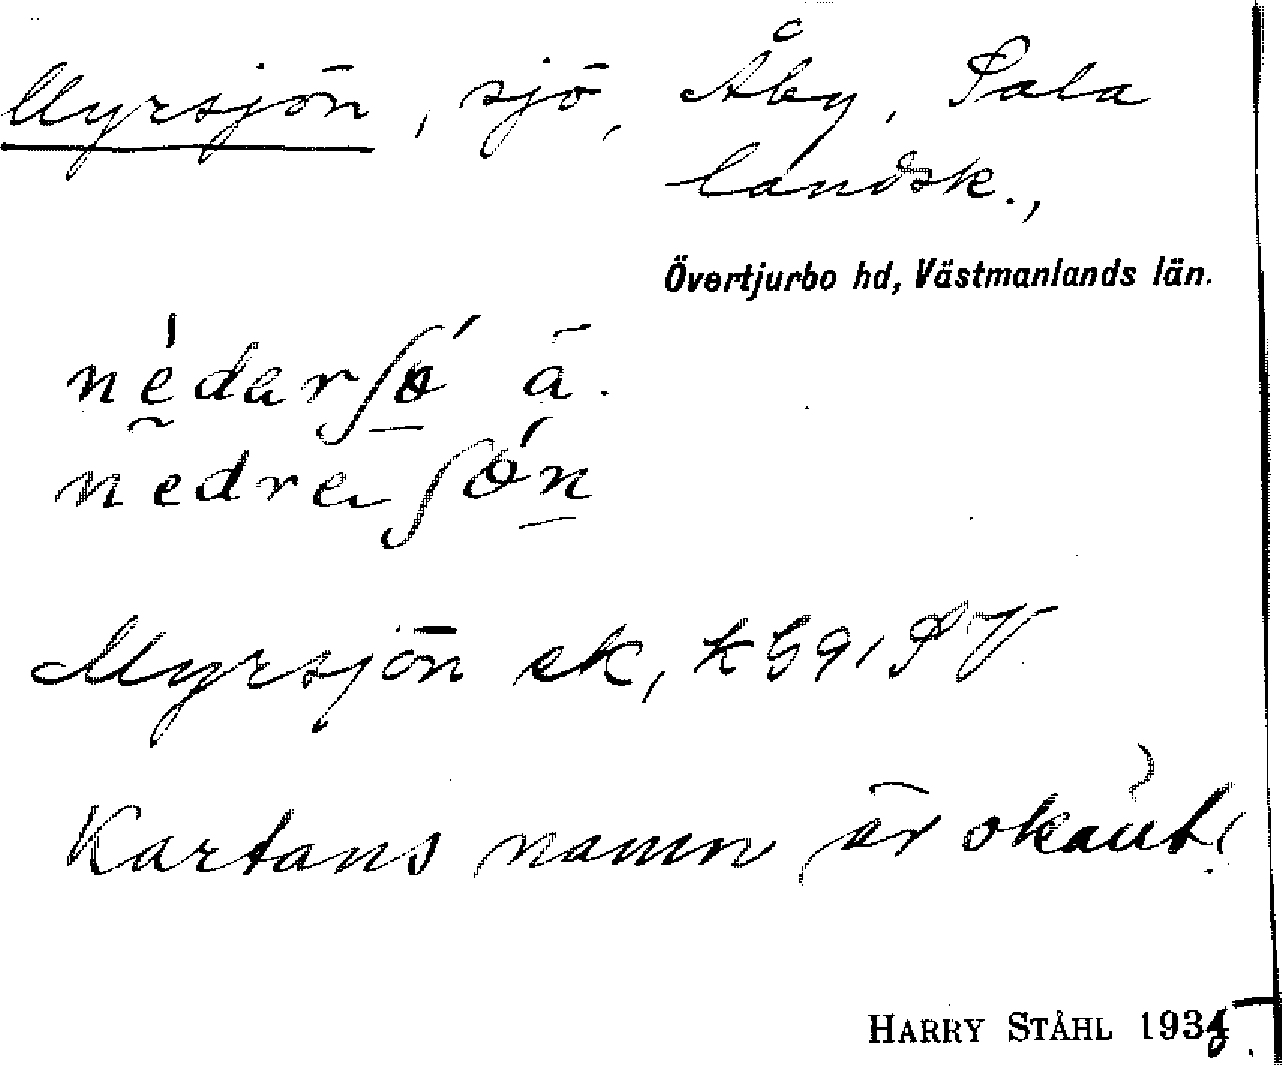 Myrsjön, sjö, Åby, Sala
landsk.,
Övertjurbo hd, Västmanlands län.
nédarʃö́ ä.
nedre ʃö́n
Myrsjön ek, k 89, SV
Kartans namn är okänt!
HARRY STÅHL 1935.